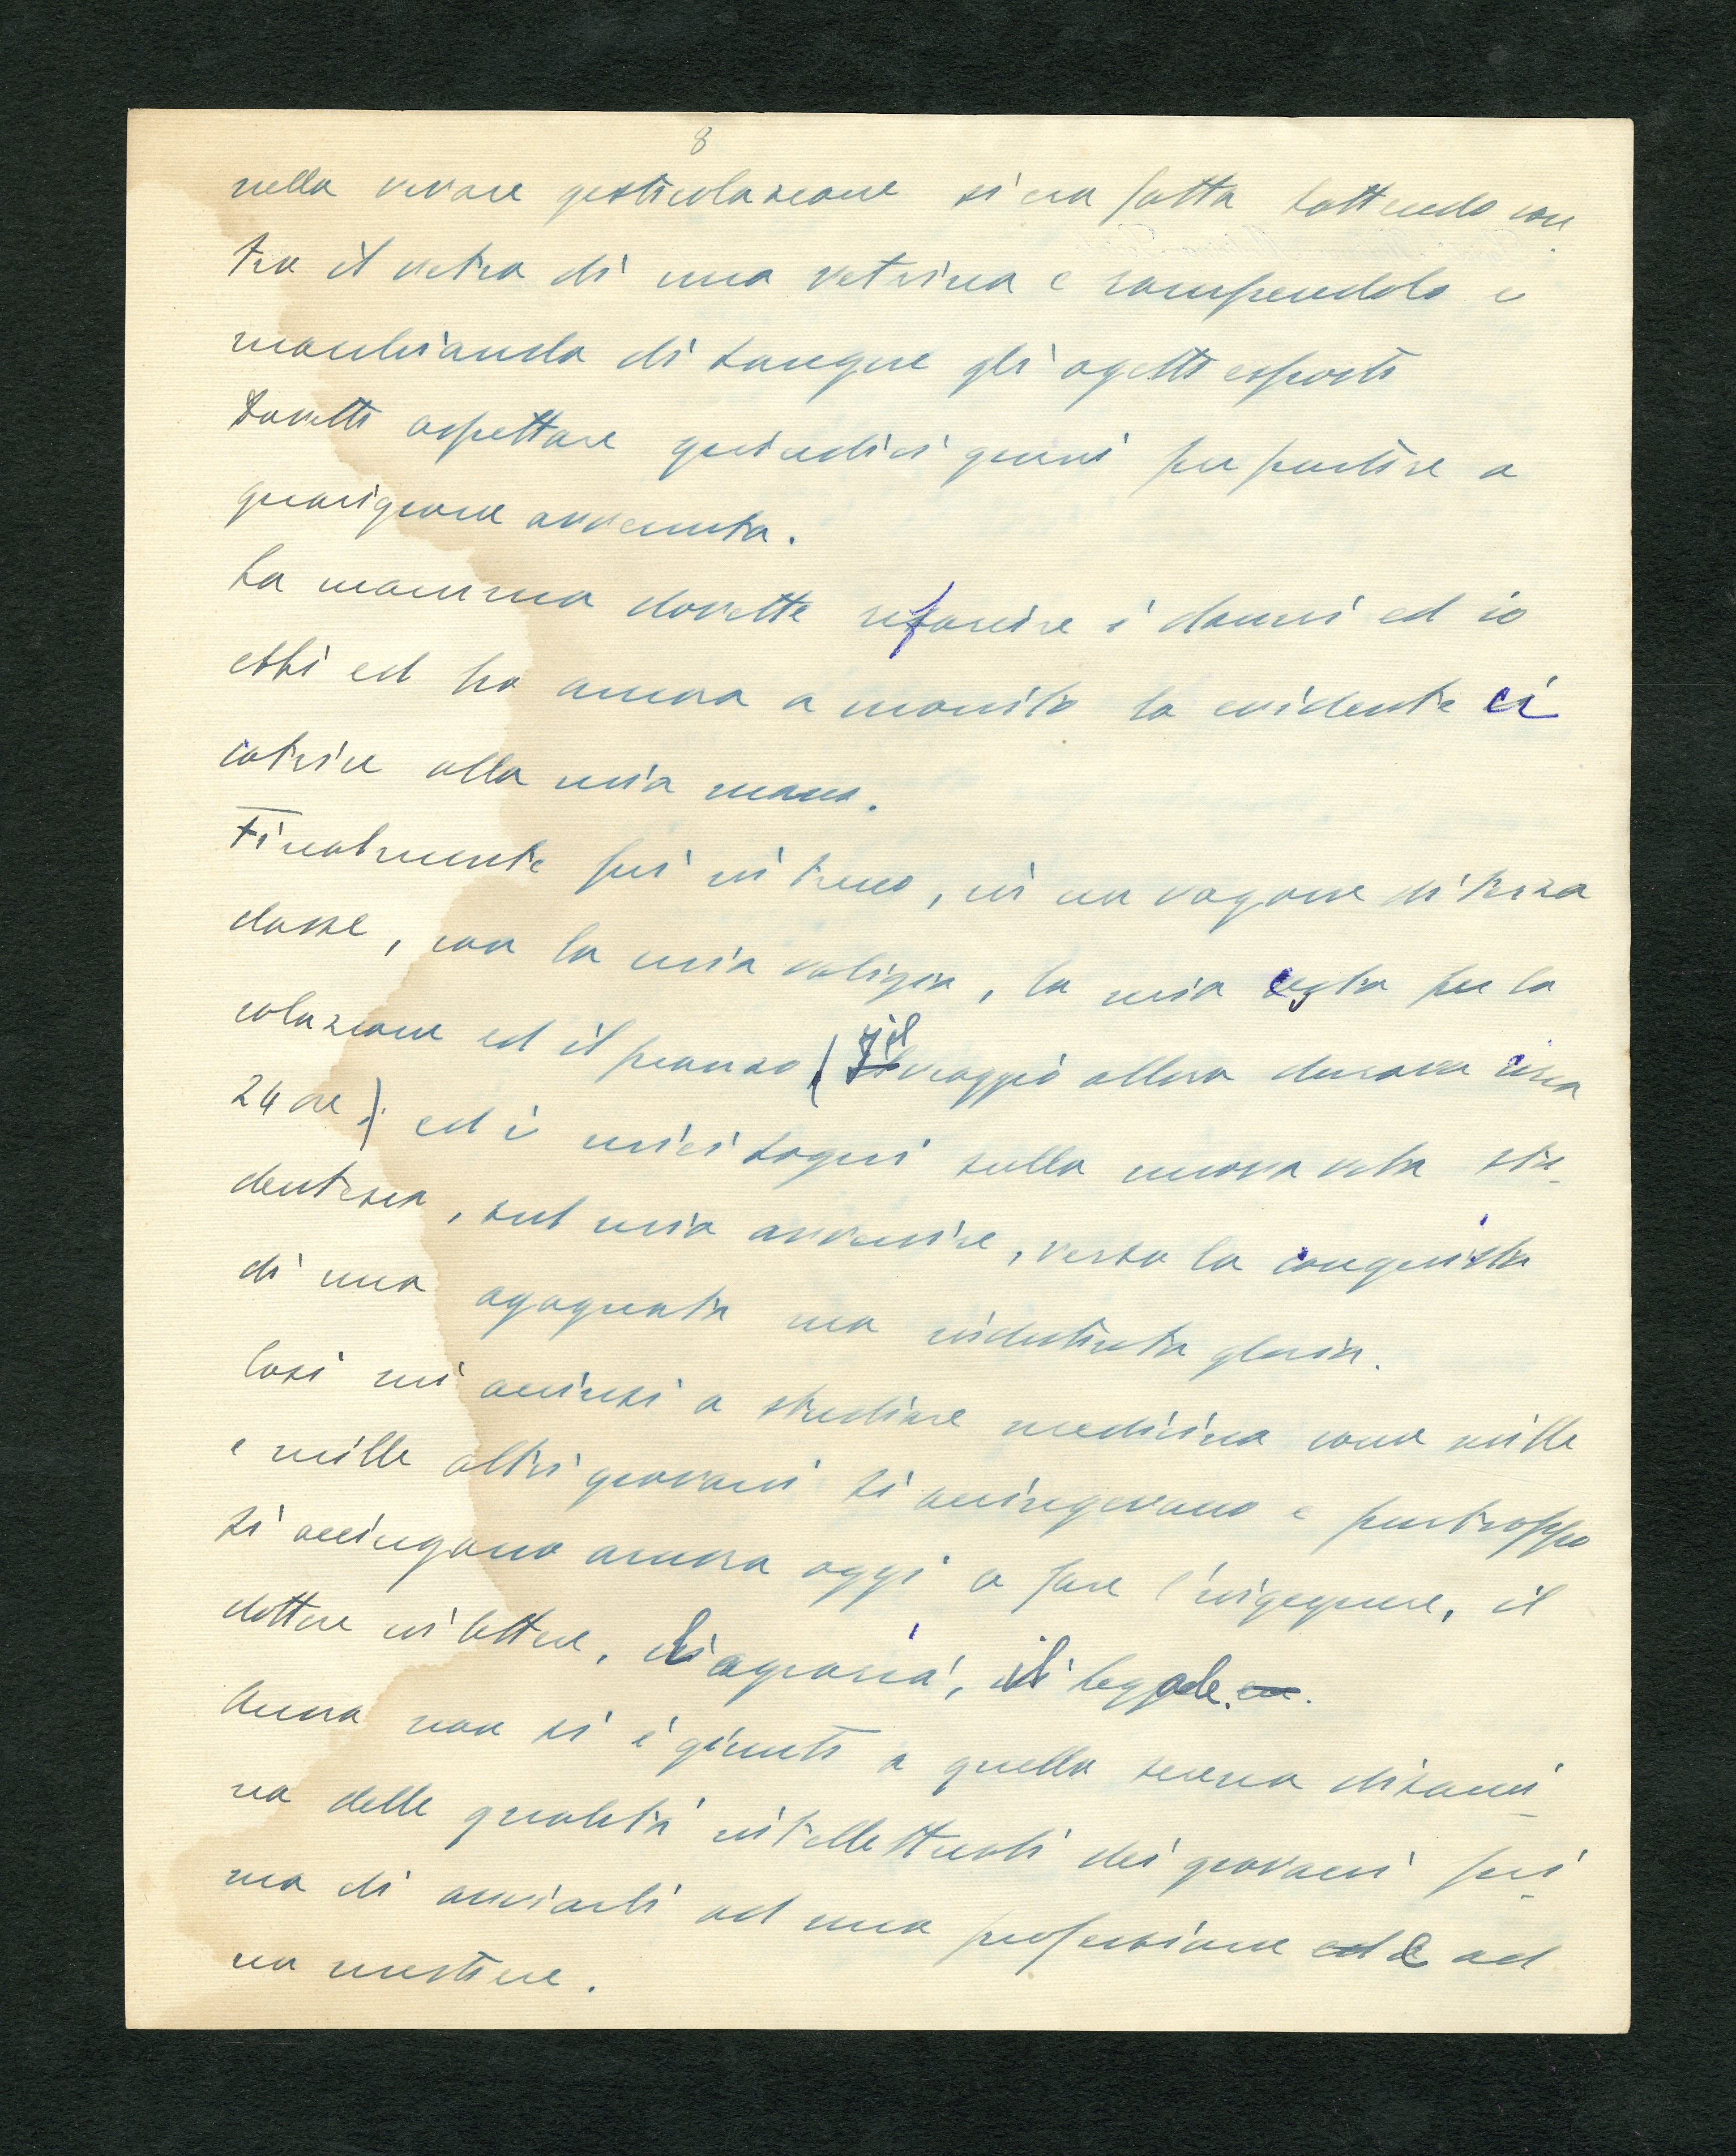 8
nella vivace gesticolazione si era fatta battendo con
tro il vetro di una vetrina e rompendolo e
macchiando di sangue gli ogetti esposti
Dovetti aspettare quindici giorni per partire a
guarigione avvenuta.
La mamma dovette rifarcire i danni ed io
ebbi ed ho ancora a monito la evidente ci
catrice alla mia mano.
Finalmente fui in treno, in un vagone di terza
classe, con la mia valigia, la mia cesta per la
colazione ed il pranzo (il viaggio allora durava circa
24 ore) ed i miei sogni sulla nuova vita stu-
dentesca, sul mio avvenire, verso la conquista
di una agognata ma indistinta gloria.
Così mi accinsi a studiare medicina come mille
e mille altri giovani si accingevano e purtroppo
si accingono ancora oggi a fare l'ingegnere, il
dottore in lettere, l'agrario, il legale.
Ancora non si è giunti a quella serena disami-
na delle qualità intellettuali dei giovani pri-
ma di avviarli ad una professione e ad
un mestiere.